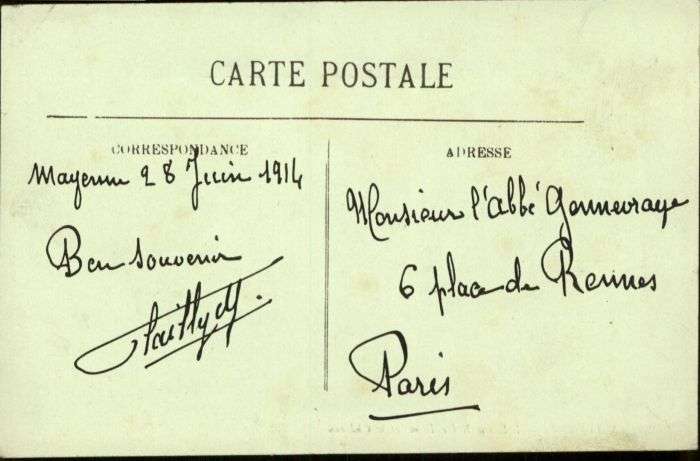 CARTE POSTALE
CORRESPONDANCE
Mayenne 28 Juin 1914
Bon souvenir
ADRESSE
Monsieur l'Abbé
6 place de Rennes
Paris